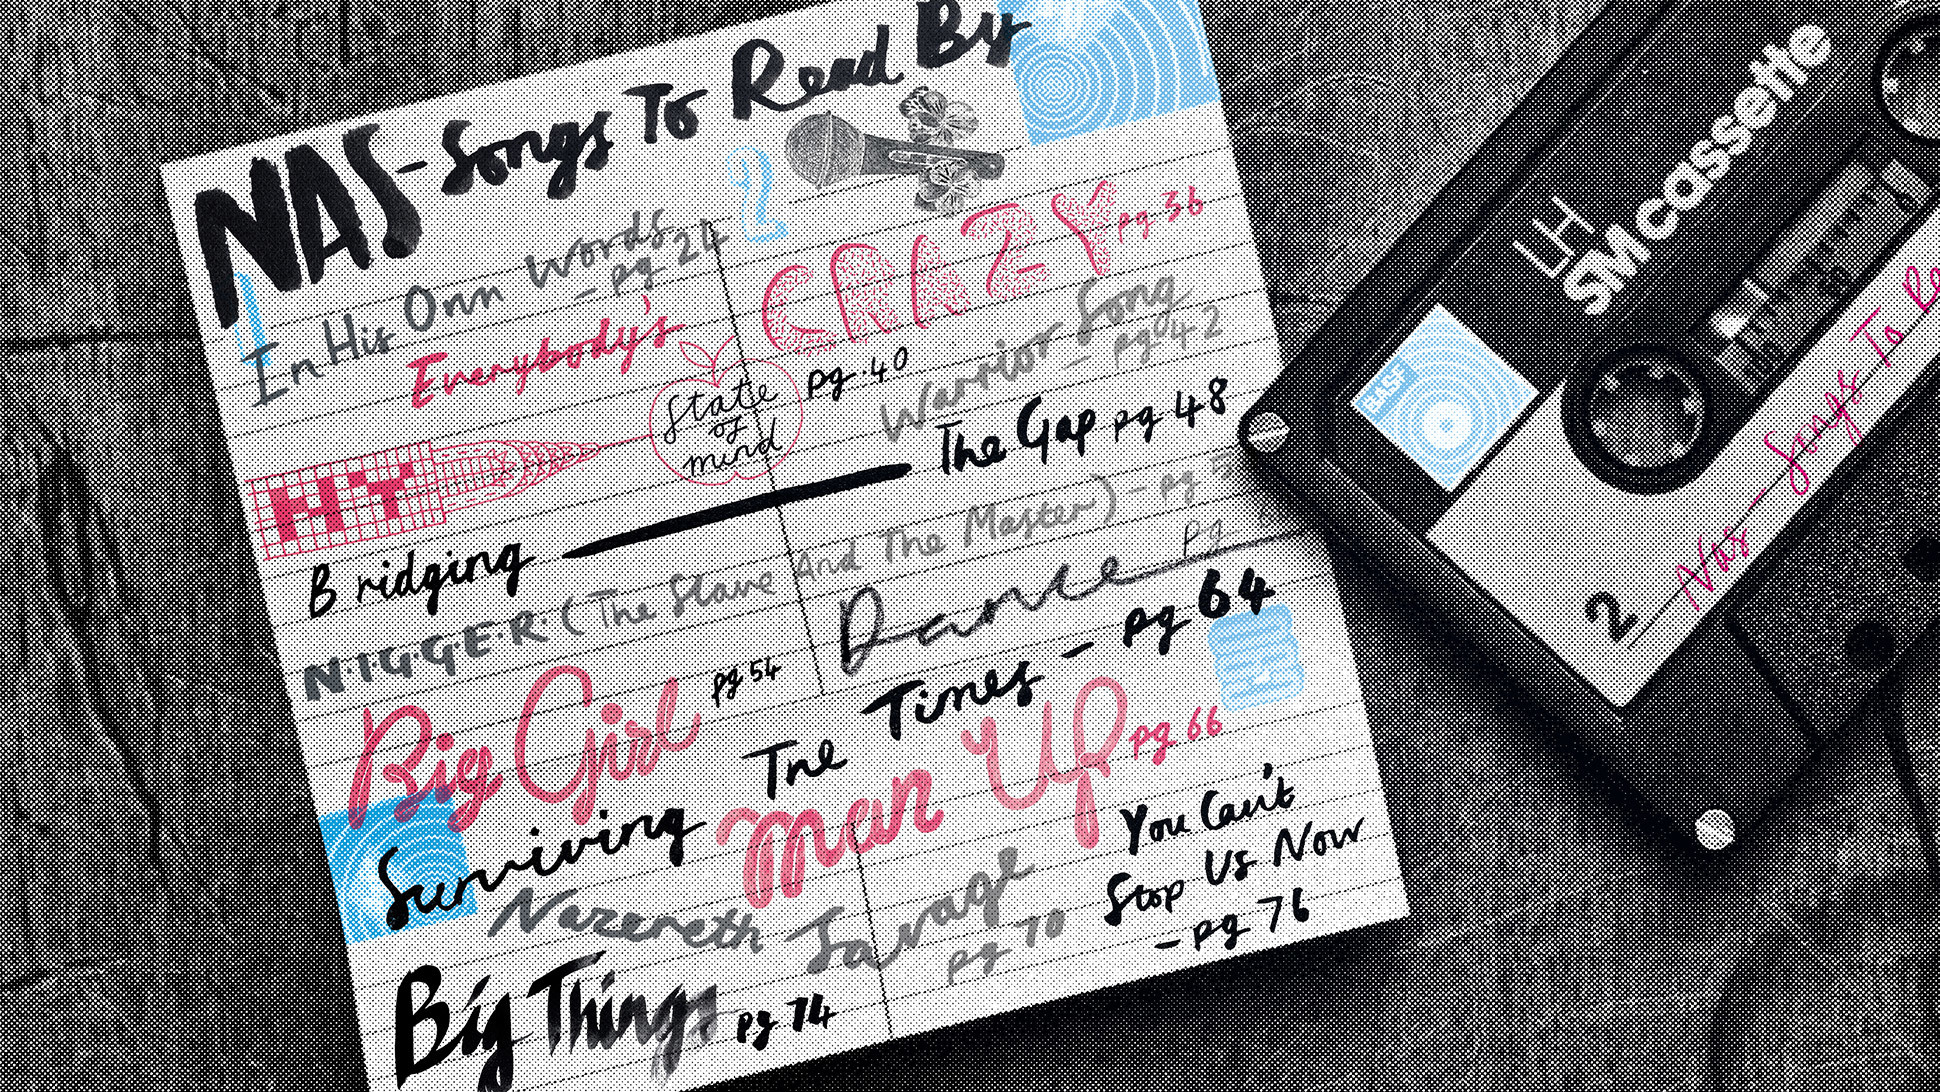 NAS - Songs To Read By
1
In His Own Words
- pg 24
2
CRAZY pg 36
Everybody's
State
of
mind
pg. 40
HIT
Warrior Song
- pg 42
Bridging The Gap pg 48
N.I.G.G.E.R. (The Slave And The Master) - pg 5
Big Girl pg 54
Dance pg
Surviving The Times - pg 64
Man Up pg 66
Nazareth Savage
pg 70
You Can't
Stop Us Now
- pg 76
Big Things pg 74
SM cassette
2
Nas - Songs To Re